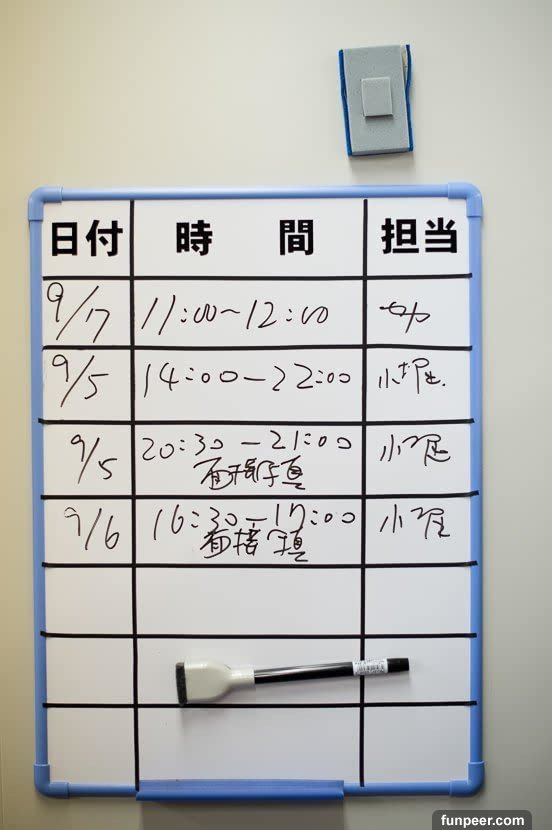 日付 時間 担当
9/17 11:00~12:00
9/5 14:00-22:00 小堀
9/5 20:30-21:00 小堀
面接写真
9/6 16:30-17:00 小堀
面接写真
funpeer.com